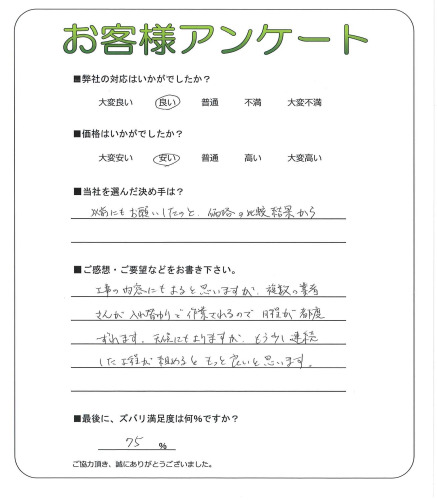 お客様アンケート
■弊社の対応はいかがでしたか?
大変良い 良い 普通 不満 大変不満
■価格はいかがでしたか?
大変安い 安い 普通 高い 大変高い
■当社を選んだ決め手は?
以前にもお願いしたのと、価格の比較結果から
■ご感想・ご要望などをお書き下さい。
工事の内容にもよると思いますが、複数の業者
さんが入れ替わりで作業されるので 日程が都度
ずれます。天候にもよりますが、もう少し連続
した工程が組めるともっと良いと思います。
■最後に、ズバリ満足度は何%ですか?
75 %
ご協力頂き、誠にありがとうございました。